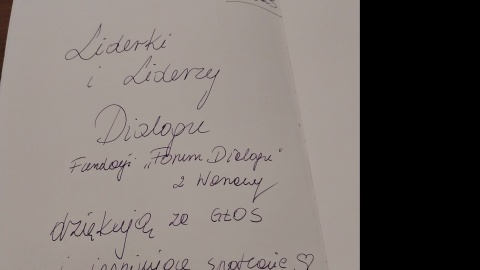 Liderki
i Liderzy
Dialogu
Fundacji "Forum Dialogu"
z Warszawy
dziękują za GŁOS
i inspirujące spotkanie ♡